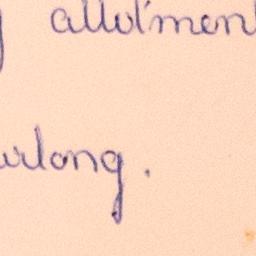 allotment
urlong.